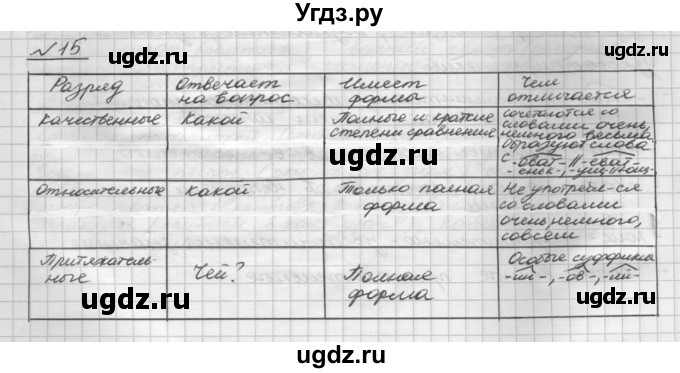 Угдз.ру
№15
Разряд
Отвечает
на вопрос
Имеет
формы
Чем
отличается
Качественные
Какой
Полные и краткие
степени сравнения
сочетаются со
словами очень,
немного весьма
образуют слова
с -оват-//-еват-
-еньк-, -ущ-//-ющ-
Относительные
Какой
Только полная
форма
Не употребл-ся
со словами
очень немного,
совсем
Притяжатель-
ные
Чей?
Полная
форма
Особые суффиксы
-ин-, -ов-, -ий-
ugdz.ru
ugdz.ru
ugdz.ru
ugdz.ru
ugdz.ru
ugdz.ru
ugdz.ru
ugdz.ru
ugdz.ru
ugdz.ru